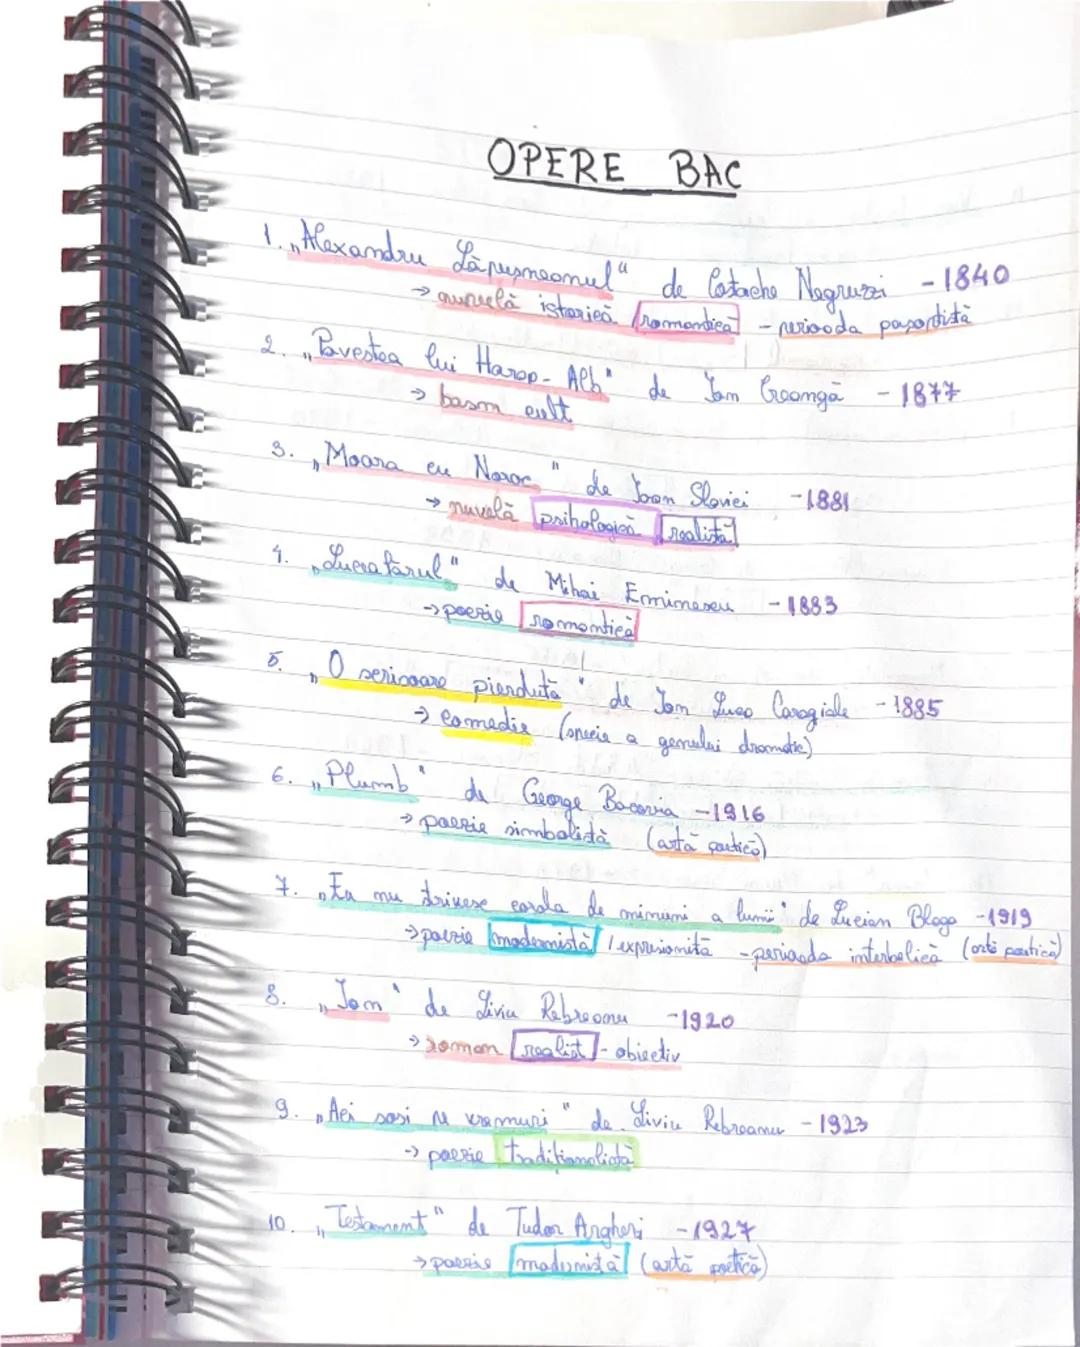 OPERE BAC
1. „Alexandru Lăpușneanul" de Costache Negruzzi - 1840
→ nuvelă istorică romantică - perioada pașoptistă
2. „Povestea lui Harap-Alb" de Ion Creangă - 1877
→ basm cult
3. „Moara cu Noroc" de Ioan Slavici - 1881
→ nuvelă psihologică realistă
4. „Luceafărul" de Mihai Eminescu - 1883
→ poezie romantică
5. „O scrisoare pierdută" de Ion Luca Caragiale - 1885
→ comedie (specie a genului dramatic)
6. „Plumb" de George Bacovia - 1916
→ poezie simbolistă (artă poetică)
7. „Eu nu strivesc corola de minuni a lumii" de Lucian Blaga - 1919
→ poezie modernistă / expresionistă - perioada interbelică (artă poetică)
8. „Ion" de Liviu Rebreanu - 1920
→ roman realist - obiectiv
9. „Aci sosi pe vremuri" de Liviu Rebreanu - 1923
→ poezie tradiționalistă
10. „Testament" de Tudor Arghezi - 1927
→ poezie modernistă (artă poetică)